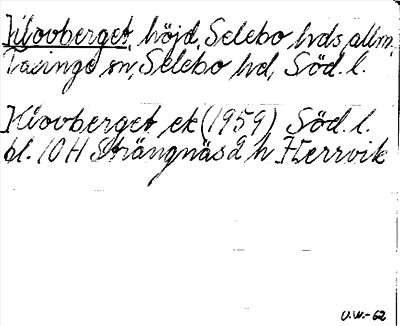 Klovberget, höjd, Selebo hds allm.
Taxinge sn, Selebo hd, Söd. l.
Klovberget ek (1959) Söd. l.
bl. 10H Strängnäs 2 h Herrvik
U.W.-62